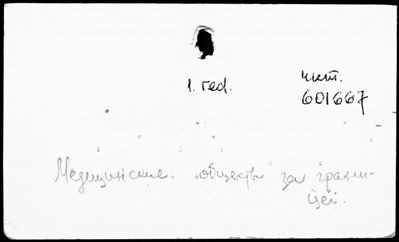 1. red.
инт.
601667
Медицинские общества за грани-
цей.